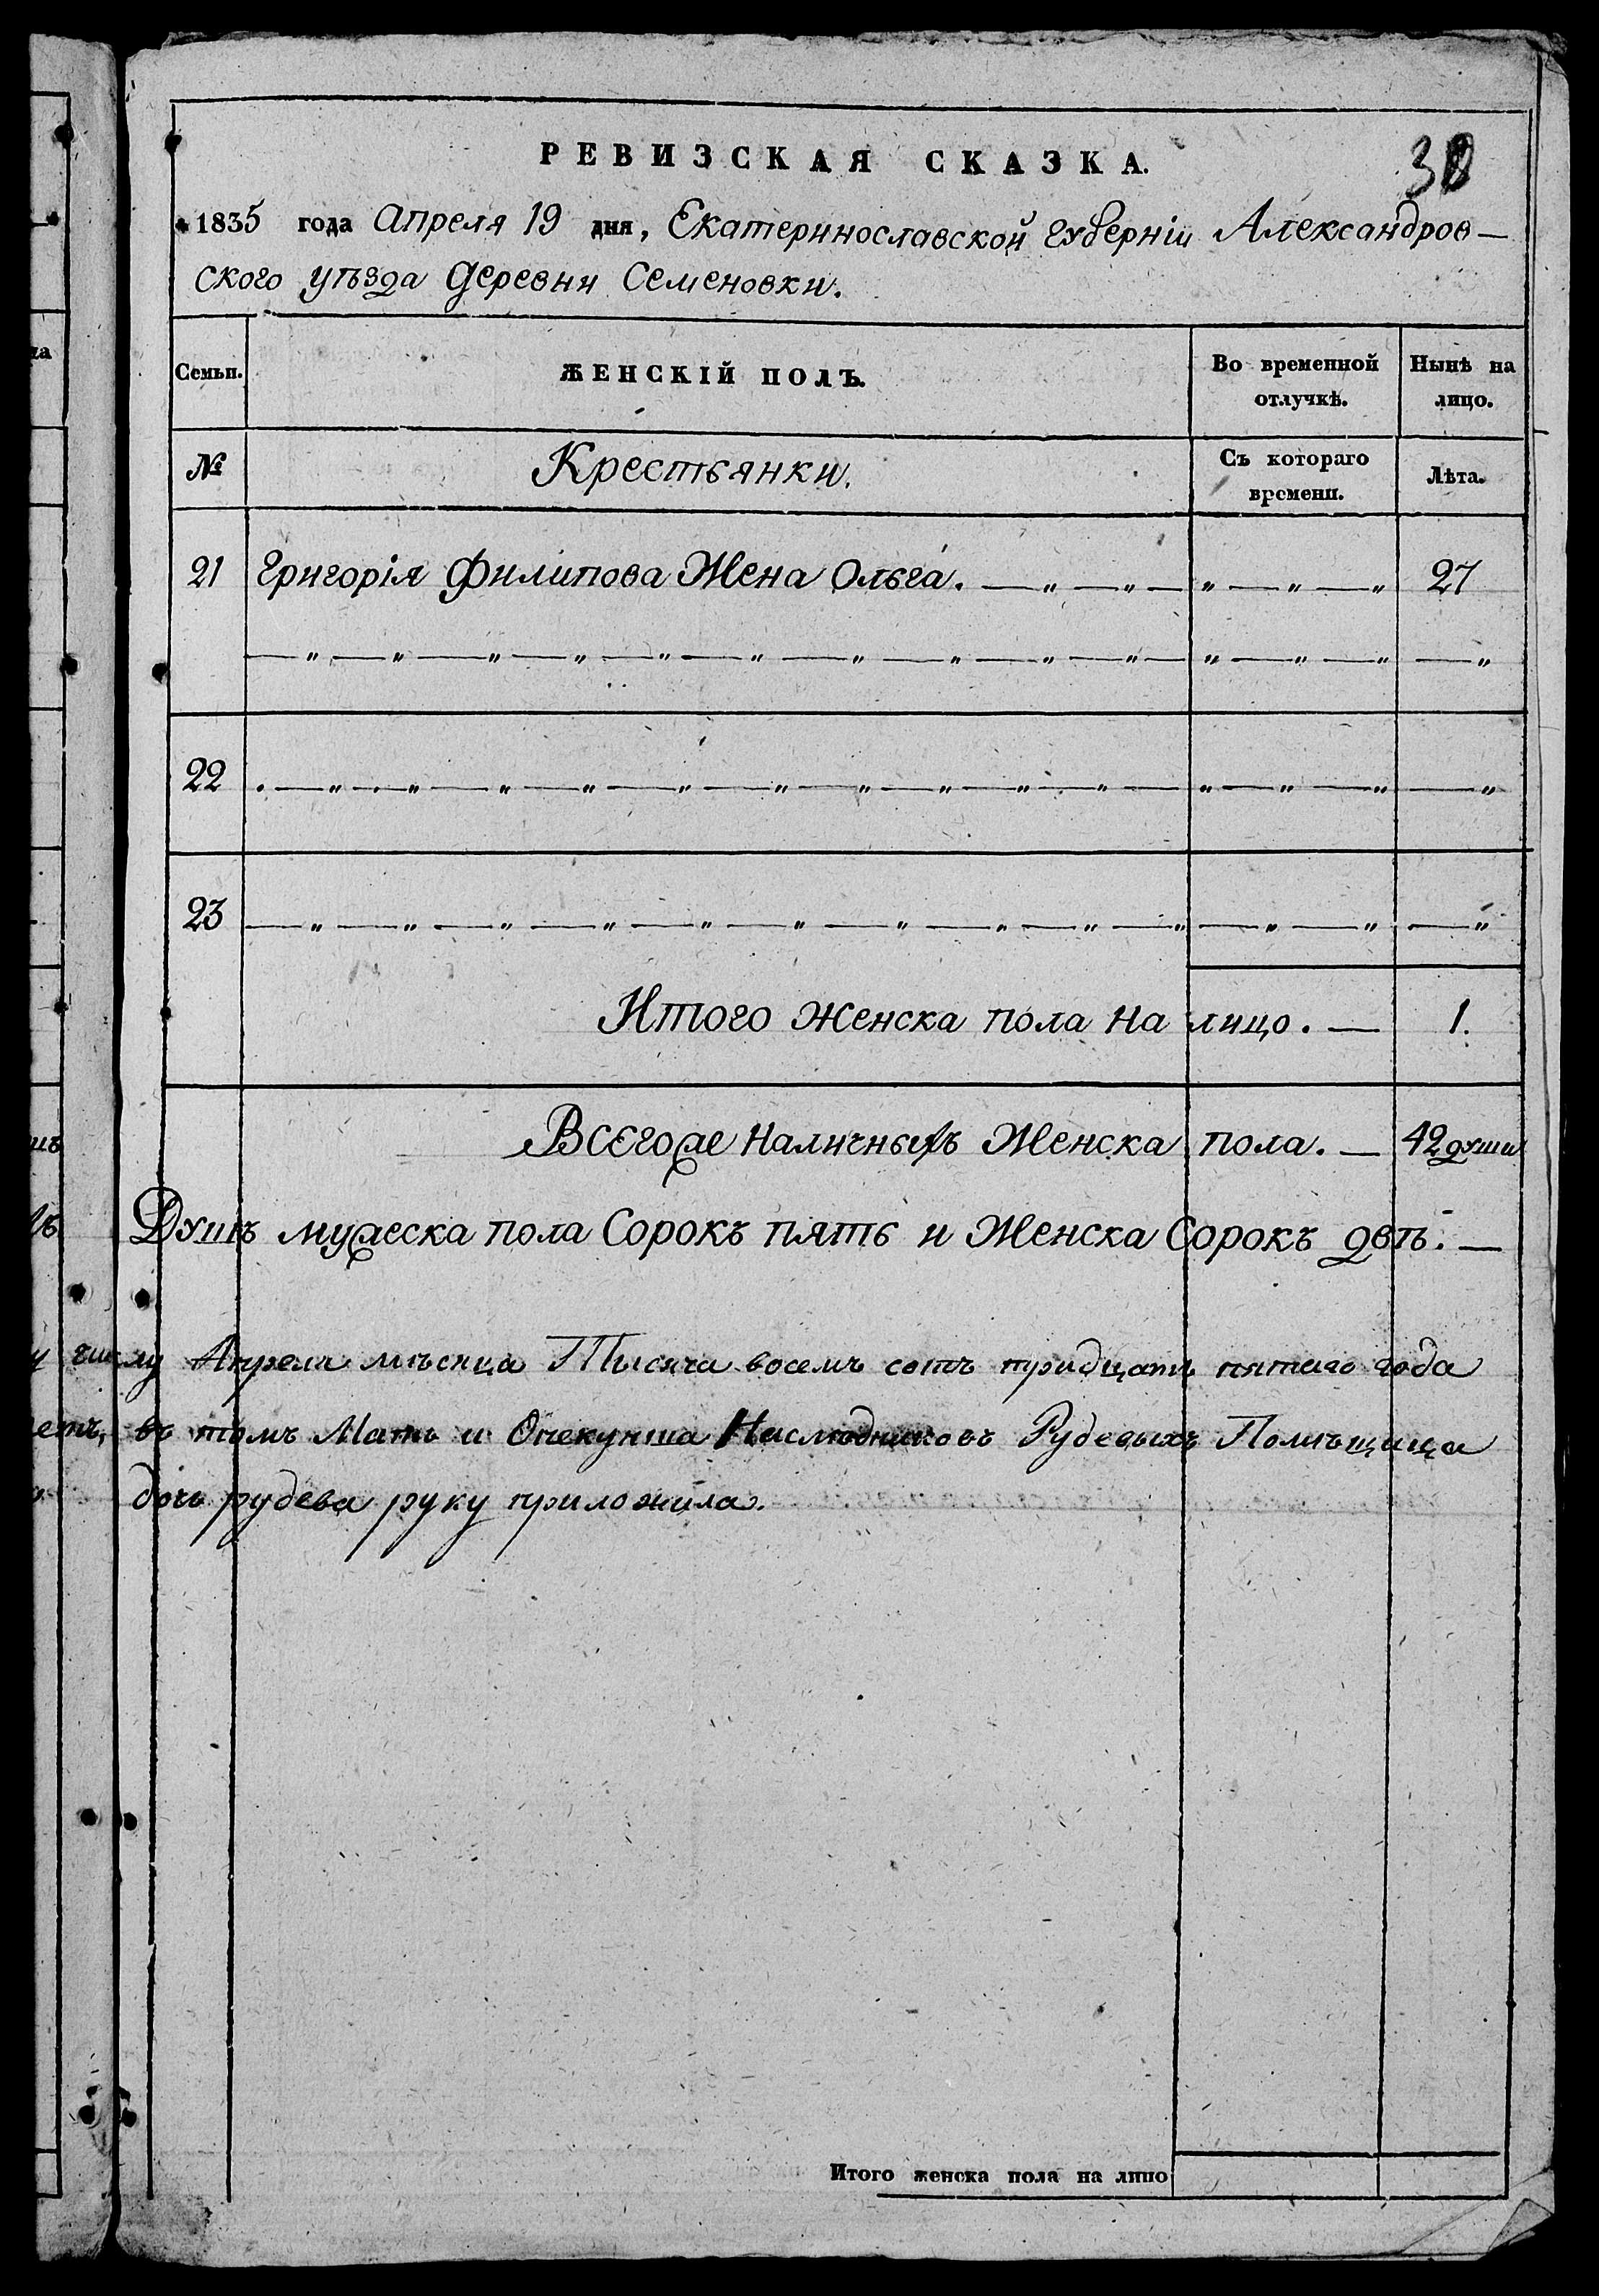 РЕВИЗСКАЯ СКАЗКА.
1835 года Апреля 19 дня, Екатеринославской Губерніи Александров—
ского уѣзда Деревни Семеновки.
Семьи. ЖЕНСКІЙ ПОЛЪ. Во временной отлучкѣ. Нынѣ на лицо.
№ Крестьянки. Съ котораго времени. Лѣта.
21 Григорія Филипова Жена Ольга. — „ — „ — „ — „ — „ 27
— „ — „ — „ — „ — „ — „ — „ — „ — „ — „ — „ — „ — „ — „
22 . — „ — „ — „ — „ — „ — „ — „ — „ — „ — „ — „ — „ — „ — „
23 — „ — „ — „ — „ — „ — „ — „ — „ — „ — „ — „ — „ — „
Итого женска пола на лицо. — 1.
Всегоже Наличныхъ Женска пола. — 42 души
Душъ мужеска пола Сорокъ пять и Женска Сорокъ двѣ. —
числу Апреля мѣсяца Тысяча восемъ сотъ тридцать пятаго года
въ томъ Мать и Опекунша Наслѣдниковъ Рудевыхъ Помѣщица
дочь рудева руку приложила.
Итого женска пола на лицо